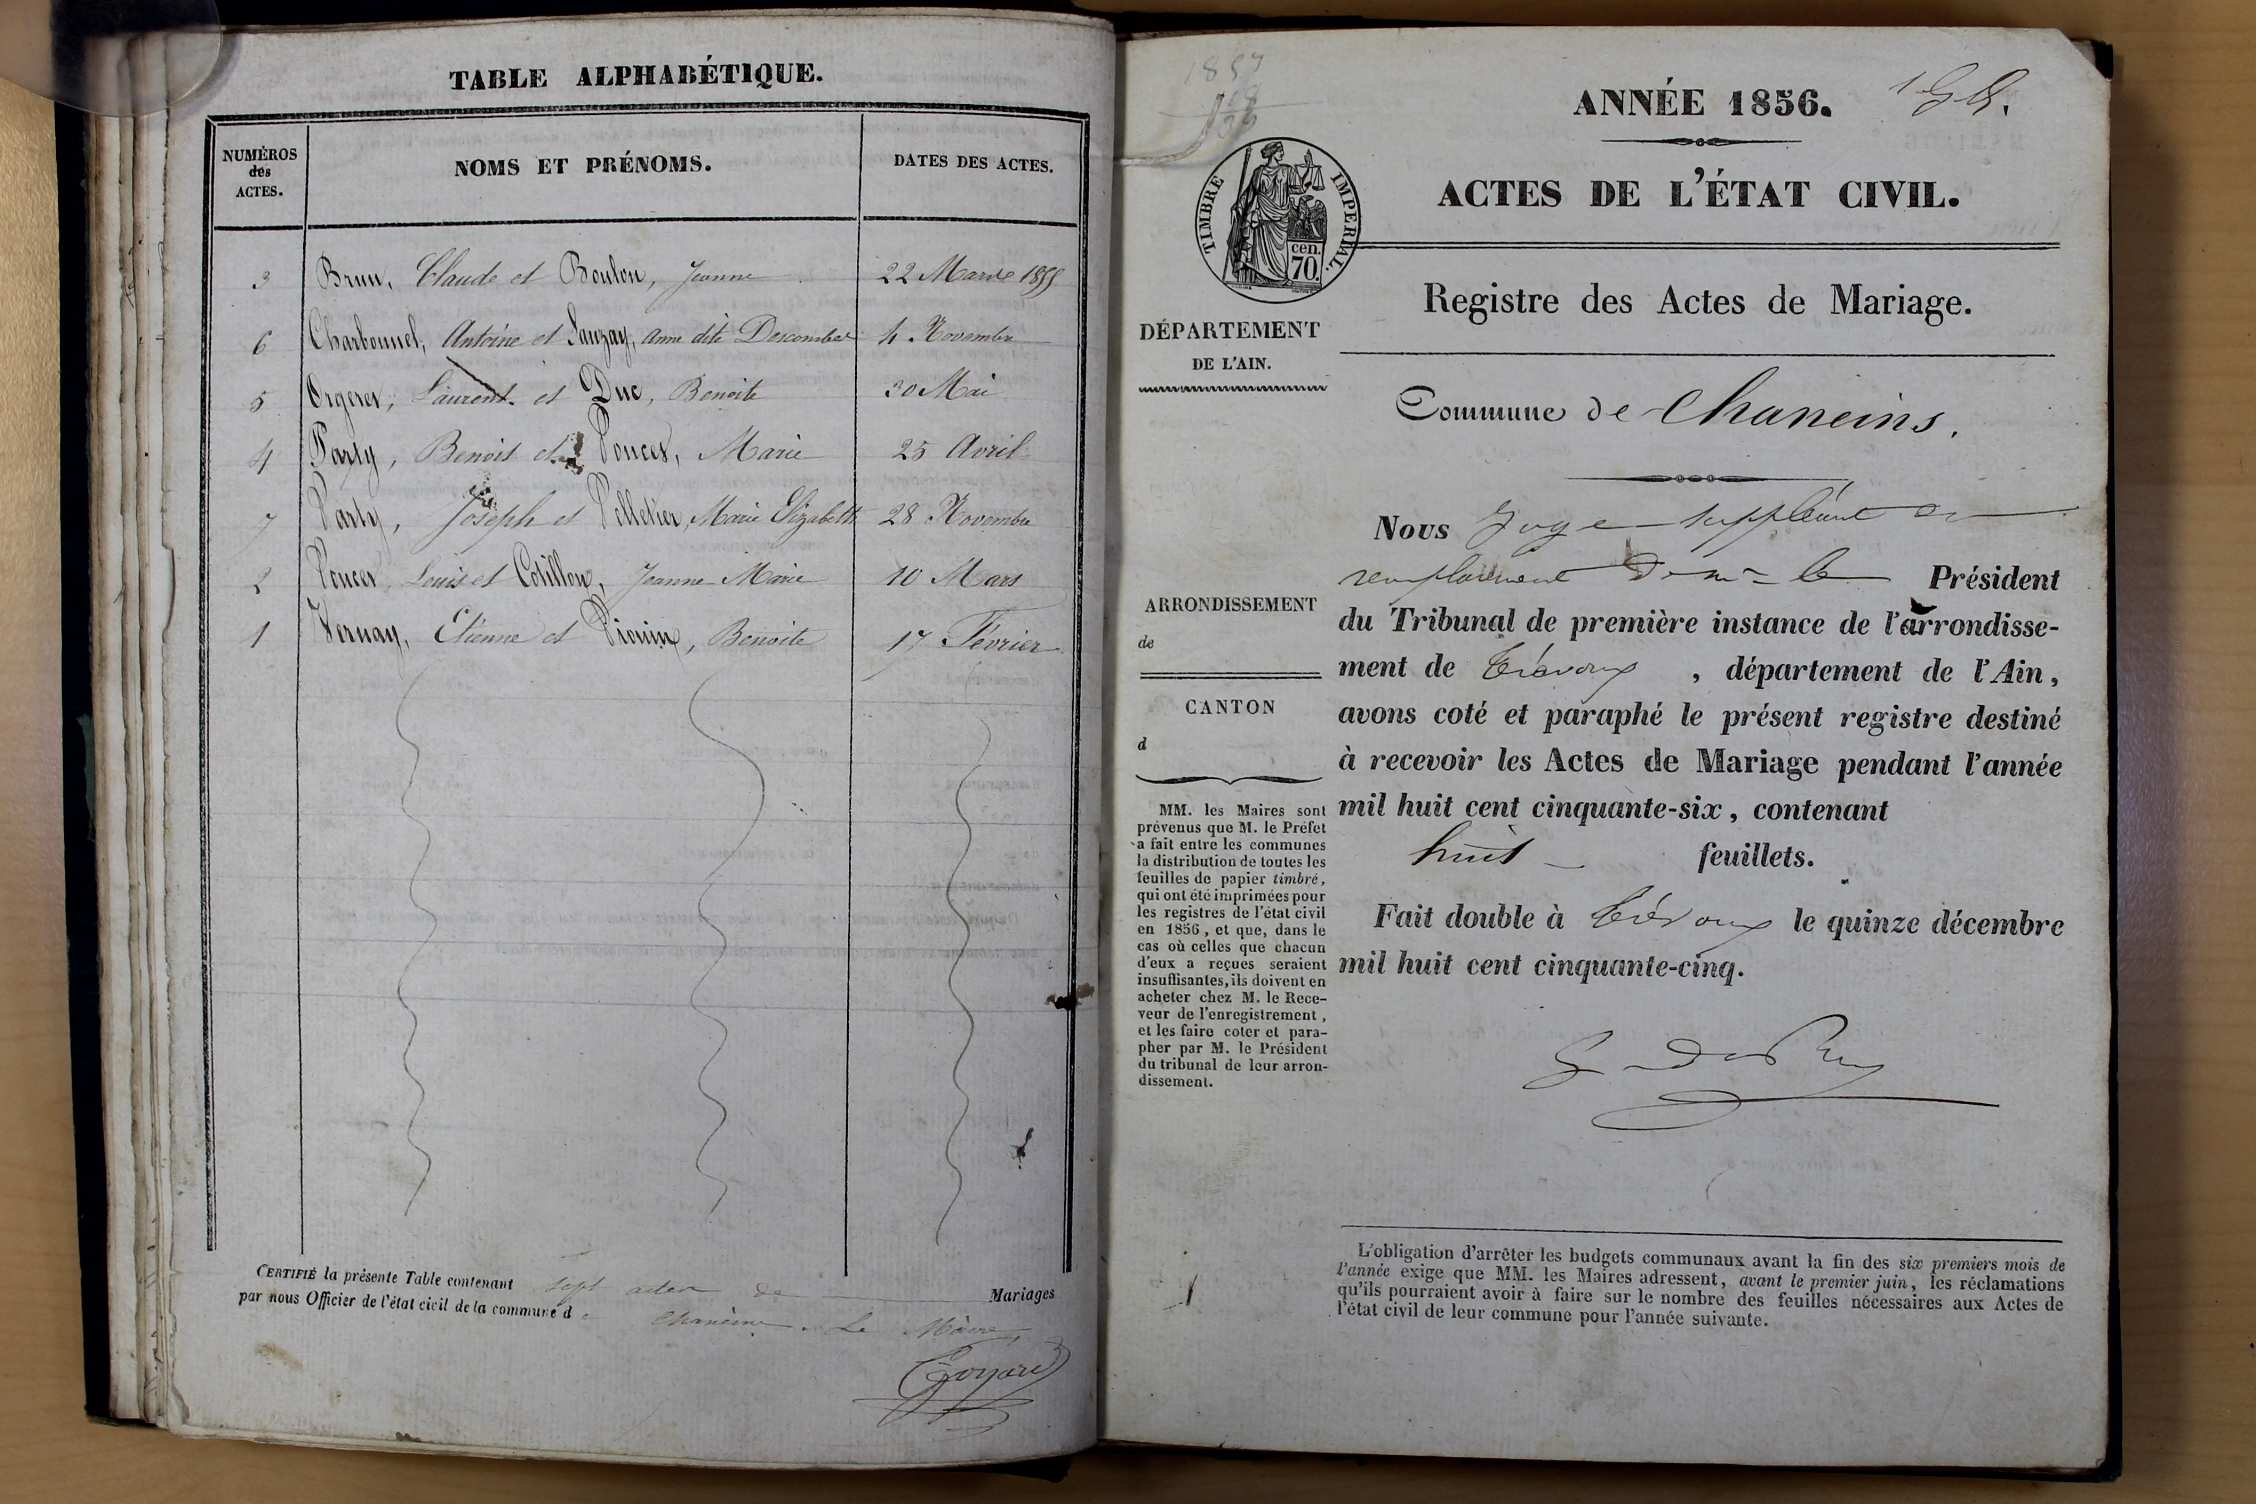 TABLE ALPHABÉTIQUE.
NUMÉROS
des
ACTES.
NOMS ET PRÉNOMS.
DATES DES ACTES.
3 Brun, Claude et Boulon, Jeanne 22 Mars 1855
6 Charbonnel, Antoine et Sauzay, Anne dite Descombes 4 Novembre
5 Orgeret, Laurent et Duc, Benoite 30 Mai
4 Party, Benoit et Poncet, Marie 25 Avril
7 Party, Joseph et Pelletier, Marie Elizabeth 28 Novembre
2 Poncet, Louis et Cotillon, Jeanne-Marie 10 Mars
1 Vernay, Etienne et Benoite 17 Février
CERTIFIÉ la présente Table contenant sept actes de Mariages
par nous Officier de l'état civil de la commune de Chaneins. Le Maire,
Goyard
1857
ANNÉE 1856.
ACTES DE L'ÉTAT CIVIL.
TIMBRE IMPERIAL.
cen.
70.
Registre des Actes de Mariage.
DÉPARTEMENT
DE L'AIN.
Commune de Chaneins.
Nous Juge suppléant en
remplacement de Mr le Président
du Tribunal de première instance de l'arrondisse-
ment de Trévoux, département de l'Ain,
avons coté et paraphé le présent registre destiné
à recevoir les Actes de Mariage pendant l'année
mil huit cent cinquante-six, contenant
huit feuillets.
Fait double à Trévoux le quinze décembre
mil huit cent cinquante-cinq.
ARRONDISSEMENT
de
CANTON
d
MM. les Maires sont
prévenus que M. le Préfet
a fait entre les communes
la distribution de toutes les
feuilles de papier timbré,
qui ont été imprimées pour
les registres de l'état civil
en 1856, et que, dans le
cas où celles que chacun
d'eux a reçues seraient
insuffisantes, ils doivent en
acheter chez M. le Rece-
veur de l'enregistrement,
et les faire coter et para-
pher par M. le Président
du tribunal de leur arron-
dissement.
L'obligation d'arrêter les budgets communaux avant la fin des six premiers mois de
l'année exige que MM. les Maires adressent, avant le premier juin, les réclamations
qu'ils pourraient avoir à faire sur le nombre des feuilles nécessaires aux Actes de
l'état civil de leur commune pour l'année suivante.